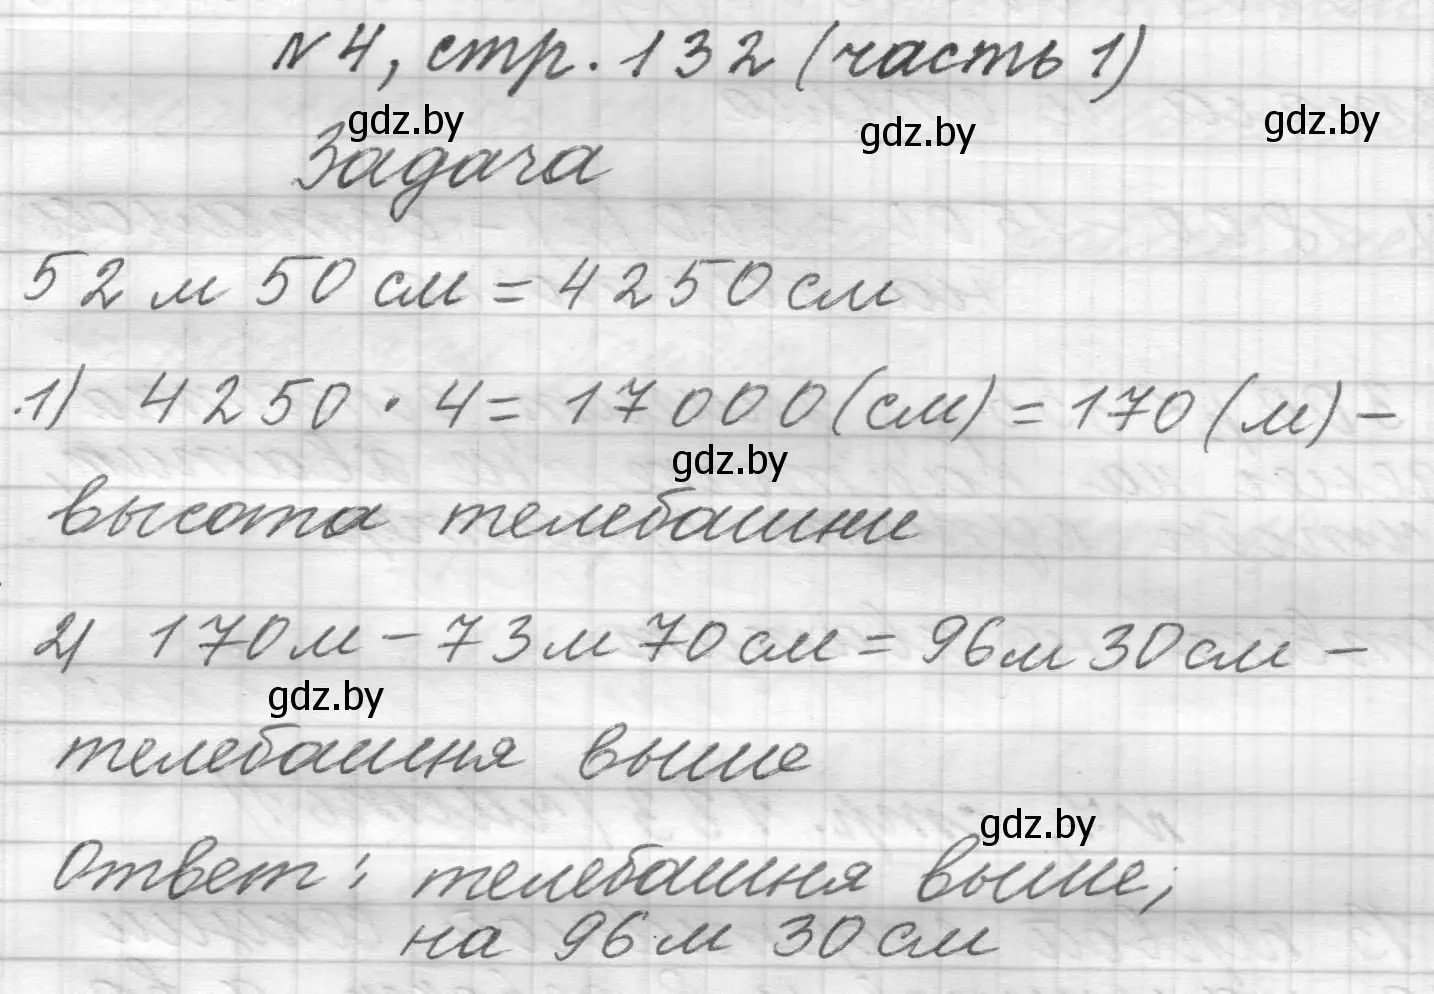 №4, стр. 132 (часть 1)
gdz.by gdz.by gdz.by
Задача
52 м 50 см = 4250 см
1) 4250 · 4 = 17000 (см) = 170 (м) –
gdz.by
высота телебашни
2) 170 м – 73 м 70 см = 96 м 30 см –
gdz.by
телебашня выше
gdz.by
Ответ: телебашня выше;
на 96 м 30 см